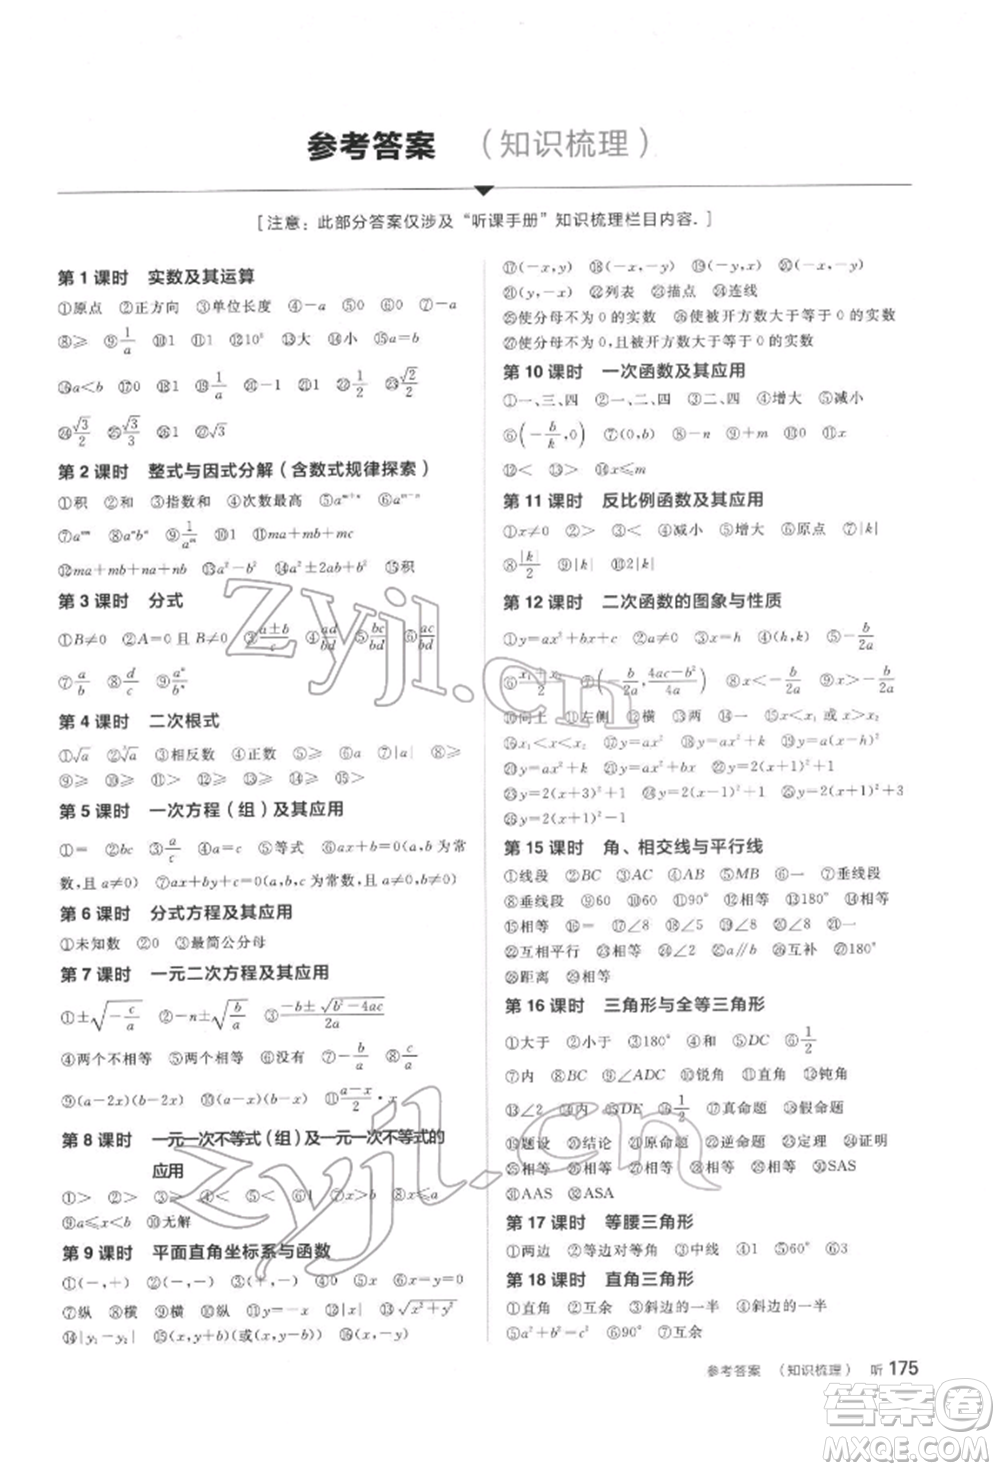 参考答案 （知识梳理）
[注意：此部分答案仅涉及“听课手册”知识梳理栏目内容.]
第 1 课时 实数及其运算
①原点 ②正方向 ③单位长度 ④-a ⑤0 ⑥0 ⑦-a
⑧≥ ⑨1/a ⑩1 ⑪1 ⑫10⁶ ⑬大 ⑭小 ⑮a=b
⑯a<b ⑰0 ⑱0 ⑲1/a ⑳-1 ㉑1 ㉒1/2 ㉓√2/2
㉔√3/2 ㉕√3/3 ㉖1 ㉗√3
第 2 课时 整式与因式分解（含数式规律探索）
①积 ②和 ③指数和 ④次数最高 ⑤aᵐ⁺ⁿ ⑥aᵐ⁻ⁿ
⑦aᵐⁿ ⑧aⁿbⁿ ⑨1/aᵐ ⑩1 ⑪ma+mb+mc
⑫ma+mb+na+nb ⑬a²-b² ⑭a²±2ab+b² ⑮积
第 3 课时 分式
①B≠0 ②A=0 且 B≠0 ③(a±b)/c ④ad/bd ⑤bc/bd ⑥ac/bd
⑦a/b ⑧d/c ⑨aⁿ/bⁿ
第 4 课时 二次根式
①√a ②∛a ③相反数 ④正数 ⑤≥ ⑥a ⑦|a| ⑧≥
⑨≥ ⑩≥ ⑪≥ ⑫≥ ⑬> ⑭≥ ⑮>
第 5 课时 一次方程（组）及其应用
①= ②bc ③a/c ④≠ ⑤等式 ⑥ax+b=0(a,b 为常
数,且 a≠0) ⑦ax+by+c=0(a,b,c 为常数,且 a≠0,b≠0)
第 6 课时 分式方程及其应用
①未知数 ②0 ③最简公分母
第 7 课时 一元二次方程及其应用
①±√(-c/a) ②-n±√(b/a) ③(-b±√(b²-4ac))/2a
④两个不相等 ⑤两个相等 ⑥没有 ⑦-b/a ⑧c/a
⑨(a-2x)(b-2x) ⑩(a-x)(b-x) ⑪(a-x)/2·x
第 8 课时 一元一次不等式（组）及一元一次不等式的
应用
①> ②> ③> ④< ⑤< ⑥< ⑦x>b ⑧x≤a
⑨a≤x<b ⑩无解
第 9 课时 平面直角坐标系与函数
①(-,+) ②(-,-) ③(+,-) ④x=0 ⑤y=0 ⑥x=y=0
⑦纵 ⑧横 ⑨横 ⑩纵 ⑪|y| ⑫|x| ⑬√(x²+y²)
⑭|y₁-y₂| ⑮(x,y+b)(或(x,y-b)) ⑯(x,-y)
⑰(-x,y) ⑱(-x,-y) ⑲(y,x) ⑳(-y,-x)
㉑(y,-x) ㉒列表 ㉓描点 ㉔连线
㉕使分母不为 0 的实数 ㉖使被开方数大于等于 0 的实数
㉗使分母不为 0,且被开方数大于等于 0 的实数
第 10 课时 一次函数及其应用
①一、三、四 ②一、二、四 ③二、三、四 ④增大 ⑤减小
⑥(-b/k,0) ⑦(0,b) ⑧-n ⑨+m ⑩0 ⑪>
⑫< ⑬> ⑭x≤m
第 11 课时 反比例函数及其应用
①x≠0 ②> ③< ④减小 ⑤增大 ⑥原点 ⑦|k|
⑧|k|/2 ⑨|k| ⑩2|k|
第 12 课时 二次函数的图象与性质
①y=ax²+bx+c ②a≠0 ③x=h ④(h,k) ⑤-b/2a
⑥(x₁+x₂)/2 ⑦(-b/2a,(4ac-b²)/4a) ⑧x<-b/2a ⑨x>-b/2a
⑩向上 ⑪左侧 ⑫横 ⑬两 ⑭一 ⑮x<x₁ 或 x>x₂
⑯x₁<x<x₂ ⑰y=ax² ⑱y=ax²+k
⑳y=2(x+3)²+2 ㉔y=2(x-1)²+3
㉖y=2x²-1
第 15 课时 角、相交线与平行线
①线段 ②BC ③AC ④AM ⑤MB ⑥一 ⑦垂线段
⑧垂线段 ⑨60 ⑩60 ⑪90° ⑫180° ⑬相等 ⑭相等
⑮相等 ⑯= ⑰∠8 ⑱∠7 ⑲∠8 ⑳∠5 ㉑一
㉒互相平行 ㉓相等 ㉔∠2 ㉕a∥b ㉖互补 ㉗180°
㉘距离 ㉙相等
第 16 课时 三角形与全等三角形
①大于 ②小于 ③180° ④和 ⑤DC ⑥1/2
⑦内 ⑧BC ⑨∠ADC ⑩锐角 ⑪直角 ⑫钝角
⑬∠2 ⑭内 ⑮DE ⑯1/2 ⑰真命题 ⑱假命题
⑲题设 ⑳结论 ㉑原命题 ㉒逆命题 ㉓定理 ㉔证明
㉕相等 ㉖相等 ㉗相等 ㉘相等 ㉙相等 ㉚SAS
㉛AAS ㉜ASA
第 17 课时 等腰三角形
①两边 ②等边对等角 ③中线 ④1 ⑤60° ⑥3
第 18 课时 直角三角形
①直角 ②互余 ③斜边的一半 ④斜边的一半
⑤a²+b²=c² ⑥90° ⑦互余
参考答案 （知识梳理） 听 175
zyjl.cn
zyjl.cn
答案卷
MXQE.COM